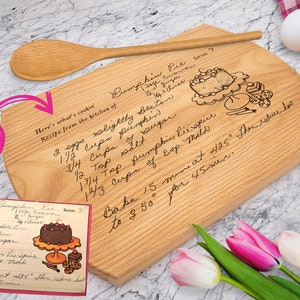 Pumpkin Pie
Serves 7
Here's what's cookin'
Recipe from the kitchen of
2 eggs slightly beaten
1 1/2 Cups pumpkin
3/4 Cups of Sugar
1/2 Tsp Salt
1 3/4 Tsp Pumpkin Pie spice
1 2/3 Cups of Evap Milk
Bake 15 min at 425° Then reduce
to 350° for 45 min.
Pie
Serves 7
Milk
at 425° Then reduce